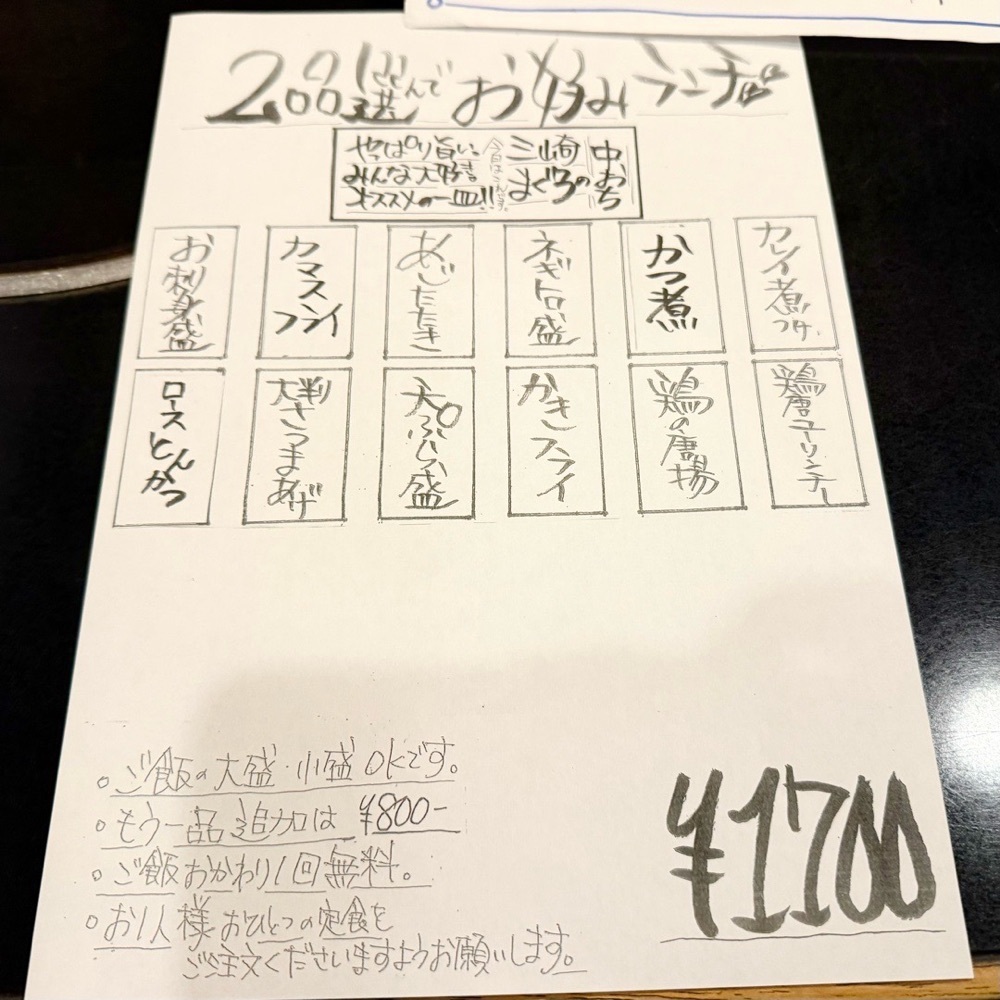 2品選んでお好みランチ
やっぱり旨い。
みんな大好き
オススメの一皿!!
今日はこれです。
三崎
まぐろの
中おち
お刺身盛
カマスフライ
あじたたき
ネギトロ盛
かつ煮
カレイ煮つけ
ロースとんかつ
大判さつまあげ
天ぷら盛
かきフライ
鶏の唐揚
鶏唐ユーリンチー
。ご飯の大盛・小盛OKです。
。もう一品追加は ¥800-
。ご飯おかわり1回無料。
。お1人様おひとつの定食を
ご注文くださいますようお願いします。
¥1700